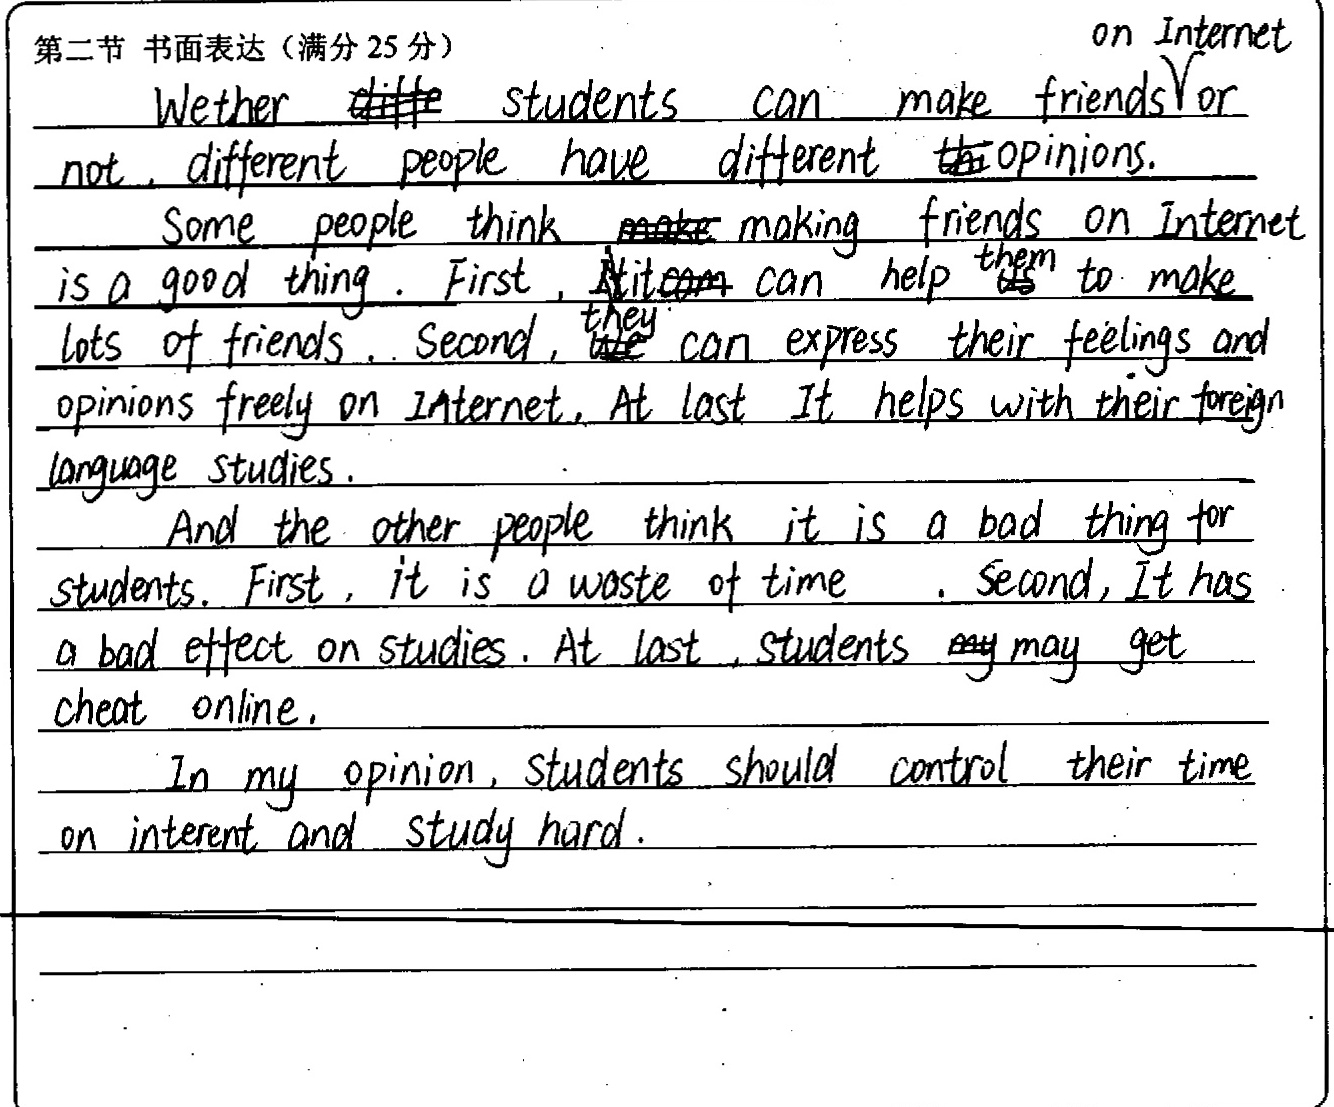 第二节 书面表达（满分 25 分）
on Internet
Wether students can make friends or
not, different people have different opinions.
Some people think making friends on Internet
is a good thing. First, it can help them to make
lots of friends. Second, they can express their feelings and
opinions freely on Internet. At last It helps with their foreign
language studies.
And the other people think it is a bad thing for
students. First, it is a waste of time . Second, It has
a bad effect on studies. At last, students may get
cheat online.
In my opinion, students should control their time
on interent and study hard.